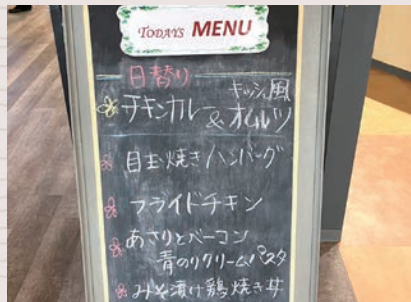 TODAYS MENU
日替り
チキンカレー & キッシュ風オムレツ
目玉焼きハンバーグ
フライドチキン
あさりとベーコン
青のりクリームパスタ
みそ漬け鶏焼き丼